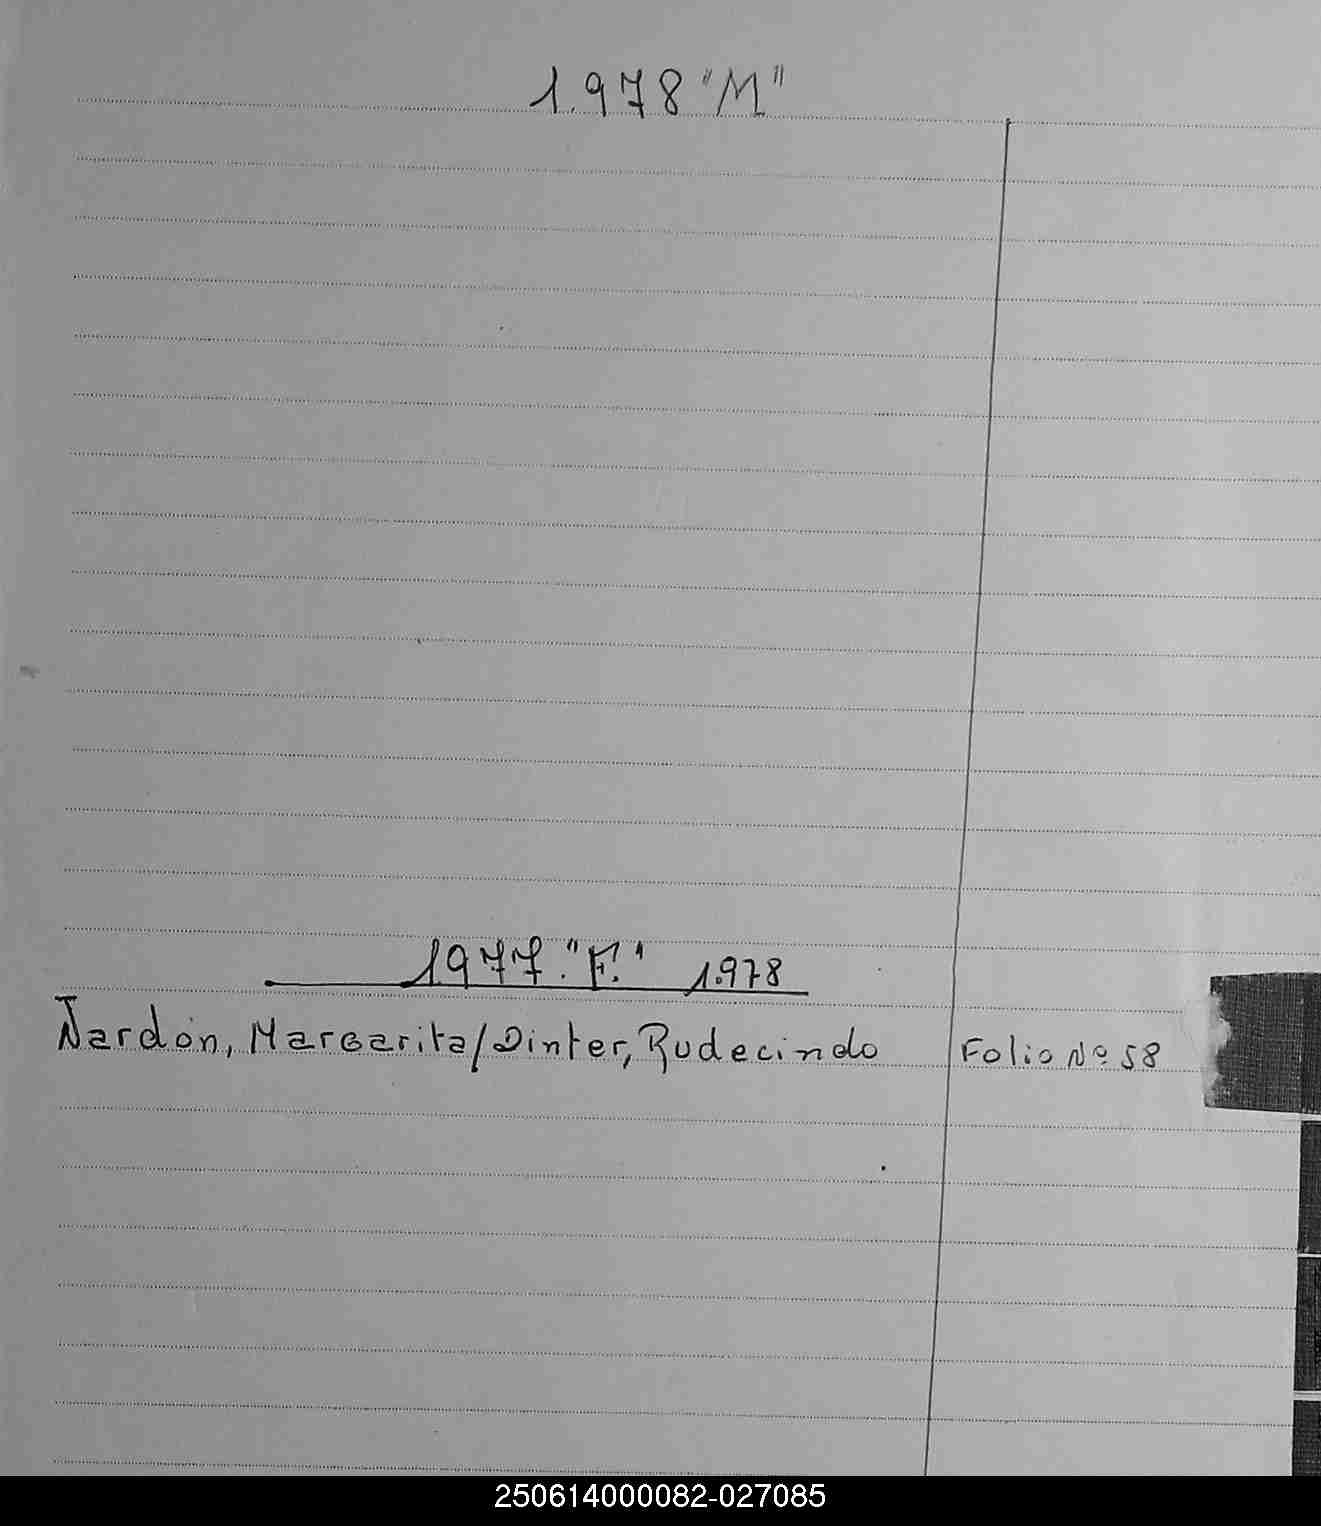 1.978 "M"
1.977. "F." 1.978
Nardón, Margarita/Dinter, Rudecindo Folio Nº 58
250614000082-027085